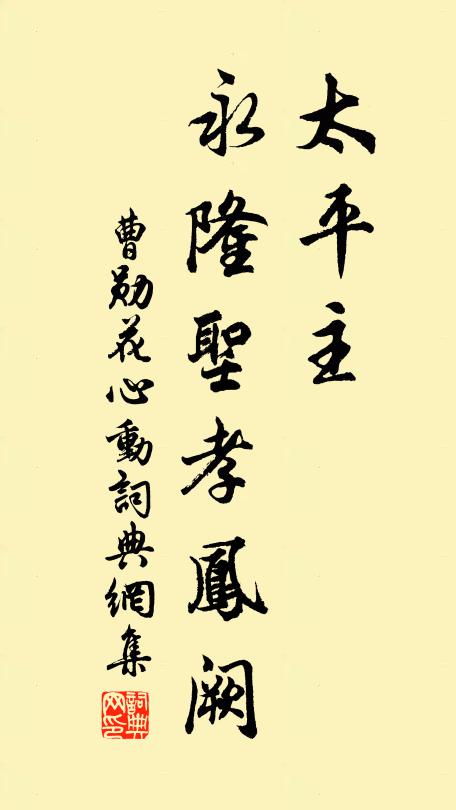 太平主
永隆聖孝鳳闕
曹勛花心動詞典網集
詞典网印